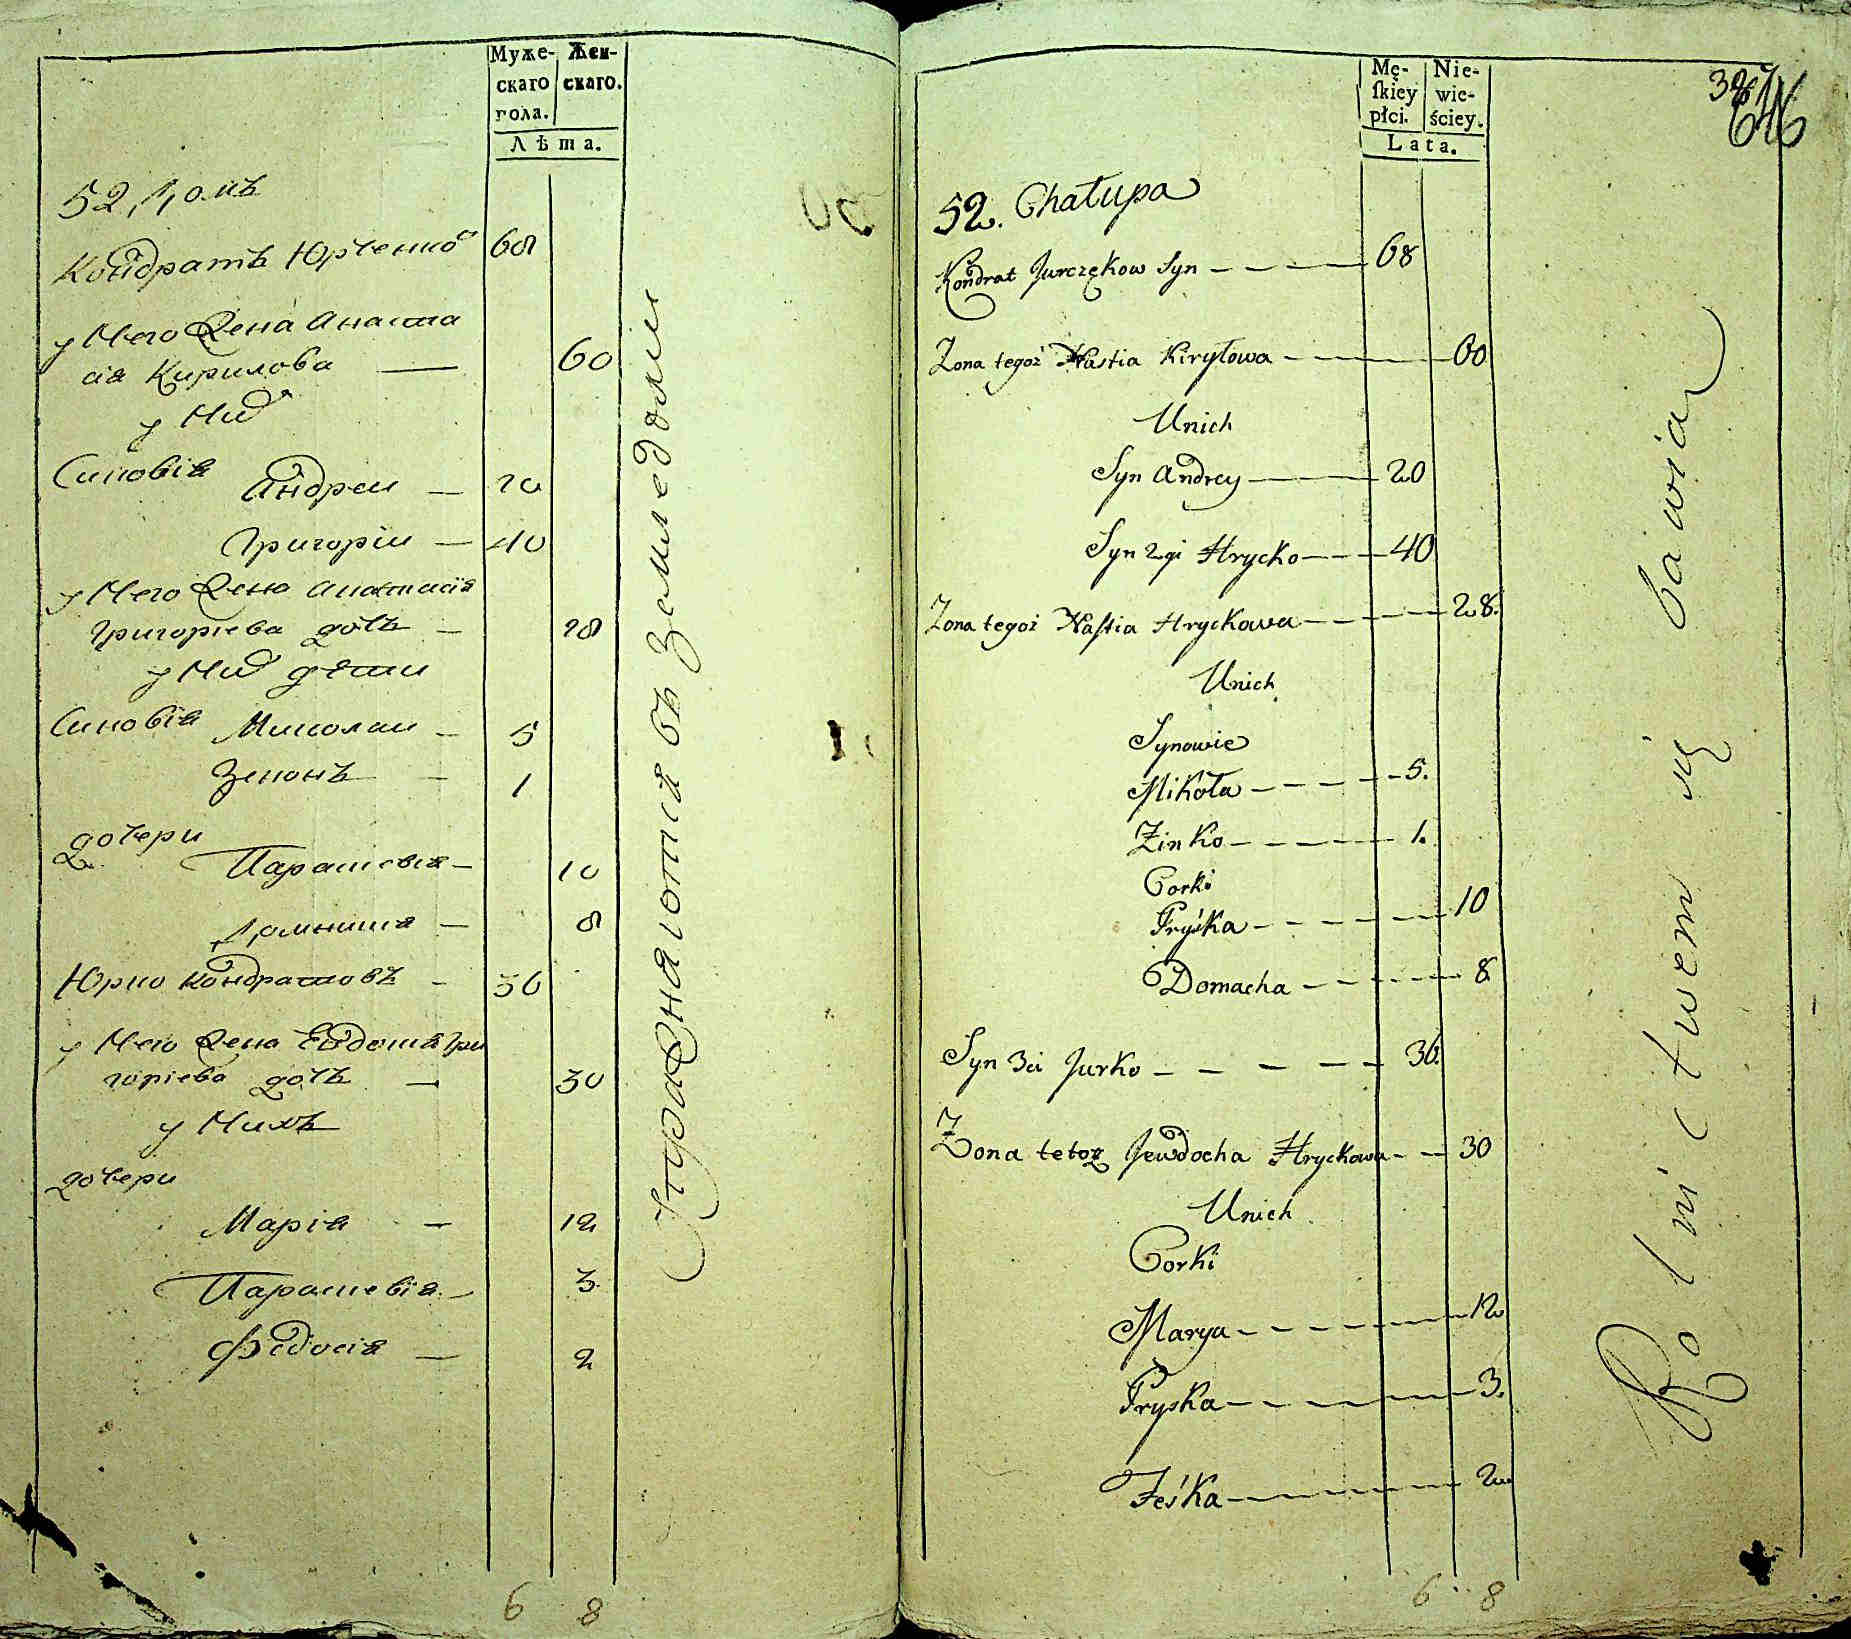 Муже-
скаго
пола.
Жен-
скаго.
Лѣта.
52, Домъ
Кондратъ Юрченко 68
у Него Жена Анаста
сія Кирилова — 60
у Них
Синовія Андреи — 20
Григоріи — 40
у Него Жена Анастасія
Григориева дочь — 28
у Них дѣти
Синовія Миколаи — 5
Зенонъ — 1
дочери
Парасковія — 10
Домникия — 8
Юрко Кондратовъ — 36
у Него Жена Евдокия Гри
горіева дочь — 30
у Нихъ
дочери
Марія — 12
Парасковія — 3
Федосія — 2
6 8
Упражняются въ Земледелии
Mę-
ſkiey
płci.
Nie-
wie-
ściey.
Lata.
52. Chałupa
Kondrat Jurczękow Syn 68
Zona tegoż Nastia Kiryłowa 60
Unich
Syn Andrey 20
Syn 2gi Hrycko 40
Zona tegoż Naſtia Hryckowa 28.
Unich
Synowie
Mikoła 5.
Zinko 1.
Corki
Pryśka 10
Domacha 8
Syn 3ci Jurko 36.
Zona tetoż Jewdocha Hryckowa 30
Unich
Corki
Marya 12
Pryska 3.
Feśka 2
6 8
Rolnictwem się bawią